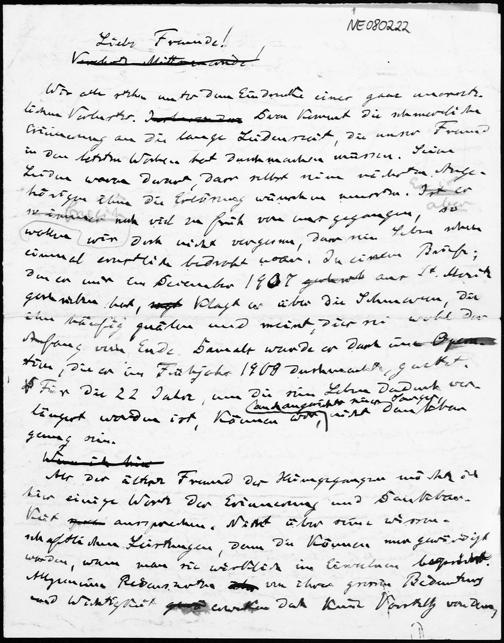 NE080222
Liebe Freunde!
Verehrte Mittrauernde!
Wir alle stehen unter dem Eindrucke eines ganz unersetz-
lichen Verlustes. Dazu kommt die schmerzliche
Erinnerung an die lange Leidenszeit, die unser Freund
in den letzten Wochen hat durchmachen müssen. Seine
Leiden waren derart, dass selbst seine nächsten Ange-
hörigen ihm die Erlösung wünschen mussten. Ist er
auch viel zu früh von uns gegangen, so
wollen wir doch nicht vergessen, dass sein Leben schon
einmal ernstlich bedroht war. In einem Briefe,
den er mir im Dezember 1907 aus St. Moritz
geschrieben hat, klagt er über die Schmerzen, die
ihn häufig quälen und meint, dies sei wohl der
Anfang vom Ende. Damals wurde er durch eine Opera-
tion, die er im Frühjahr 1908 durchmachte, gerettet.
Für die 22 Jahre, um die sein Leben dadurch ver-
längert worden ist, können wir, nicht dankbar
genug sein.
Wenn ich hier
Als der älteste Freund des Hingegangenen möchte ich
hier einige Worte der Erinnerung und Dankbar-
keit aussprechen. Nicht über seine wissen-
schaftlichen Leistungen, denn die können nur gewürdigt
werden, wenn man sie wirklich im Einzelnen bespricht.
Allgemeine Redensarten von ihrer grossen Bedeutung
und Wichtigkeit erwecken doch keine Vorstellg von dem,